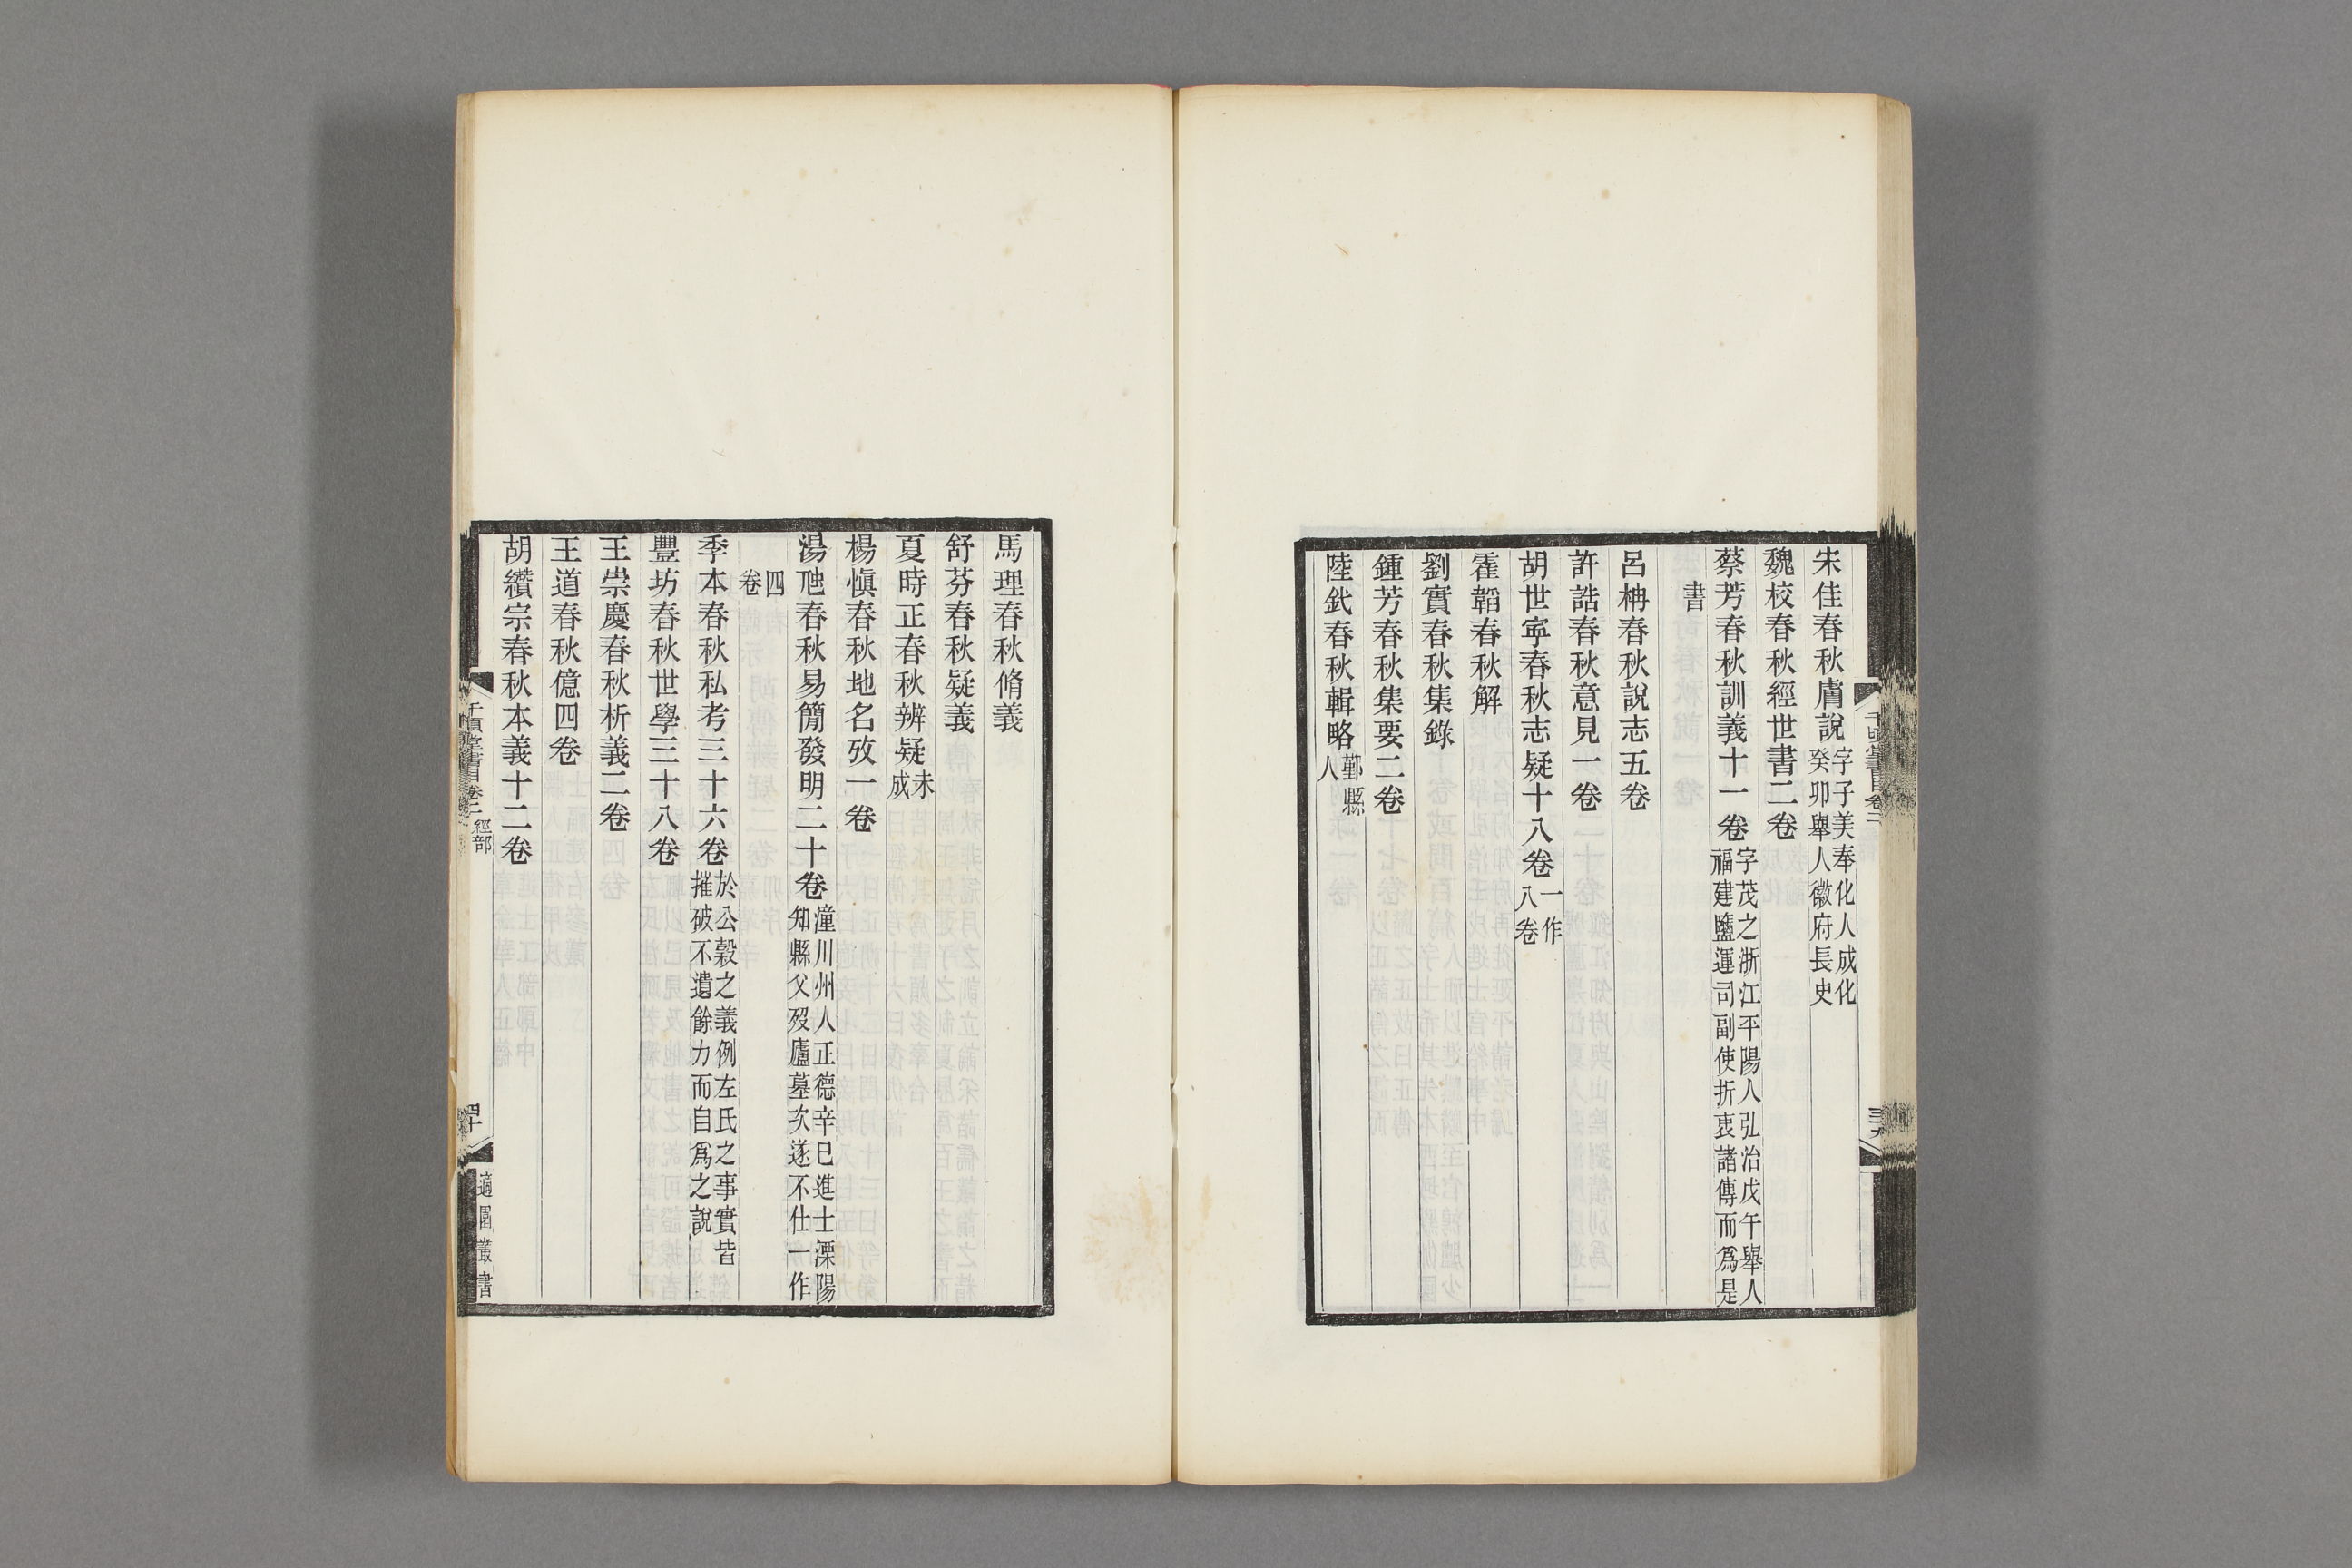 宋佳春秋膚說字子美奉化人成化
癸卯舉人徽府長史
魏校春秋經世書二卷
蔡芳春秋訓義十一卷字茂之浙江平陽人弘治戊午舉人
福建鹽運司副使折衷諸傳而爲是
書
呂柟春秋說志五卷
許誥春秋意見一卷
胡世寧春秋志疑十八卷一作
八卷
霍韜春秋解
劉實春秋集錄
鍾芳春秋集要二卷
陸釴春秋輯略鄞縣
人
馬理春秋脩義
舒芬春秋疑義
夏時正春秋辨疑未
成
楊愼春秋地名攷一卷
湯虺春秋易簡發明二十卷潼川州人正德辛巳進士溧陽
知縣父歿廬墓次遂不仕一作
四
卷
季本春秋私考三十六卷於公穀之義例左氏之事實皆
摧破不遺餘力而自爲之說
豐坊春秋世學三十八卷
王崇慶春秋析義二卷
王道春秋億四卷
胡纘宗春秋本義十二卷
千頃堂書目卷二 經部
四十
適園叢書